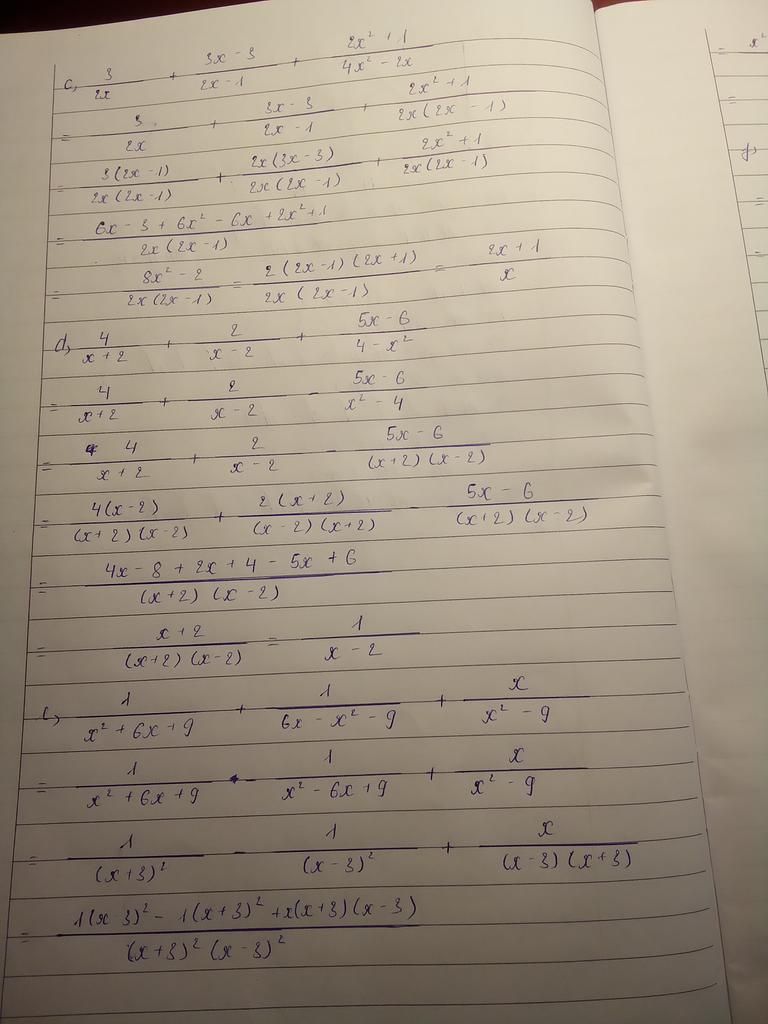 c, 3/2x + (3x - 3)/(2x - 1) + (2x² + 1)/(4x² - 2x)
= 3/2x + (3x - 3)/(2x - 1) + (2x² + 1)/(2x(2x - 1))
= 3(2x - 1)/(2x(2x - 1)) + 2x(3x - 3)/(2x(2x - 1)) + (2x² + 1)/(2x(2x - 1))
= (6x - 3 + 6x² - 6x + 2x² + 1)/(2x(2x - 1))
= (8x² - 2)/(2x(2x - 1)) = 2(2x - 1)(2x + 1)/(2x(2x - 1)) = (2x + 1)/x
d, 4/(x + 2) + 2/(x - 2) + (5x - 6)/(4 - x²)
= 4/(x + 2) + 2/(x - 2) - (5x - 6)/(x² - 4)
= 4/(x + 2) + 2/(x - 2) - (5x - 6)/((x + 2)(x - 2))
= 4(x - 2)/((x + 2)(x - 2)) + 2(x + 2)/((x - 2)(x + 2)) - (5x - 6)/((x + 2)(x - 2))
= (4x - 8 + 2x + 4 - 5x + 6)/((x + 2)(x - 2))
= (x + 2)/((x + 2)(x - 2)) = 1/(x - 2)
1/(x² + 6x + 9) + 1/(6x - x² - 9) + x/(x² - 9)
= 1/(x² + 6x + 9) - 1/(x² - 6x + 9) + x/(x² - 9)
= 1/(x + 3)² - 1/(x - 3)² + x/((x - 3)(x + 3))
= (1(x - 3)² - 1(x + 3)² + x(x + 3)(x - 3))/((x + 3)² (x - 3)²)